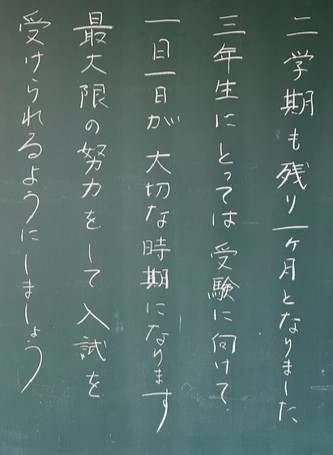 二学期も残り一ケ月となりました
三年生にとっては受験に向けて
一日一日が大切な時期になります
最大限の努力をして入試を
受けられるようにしましょう